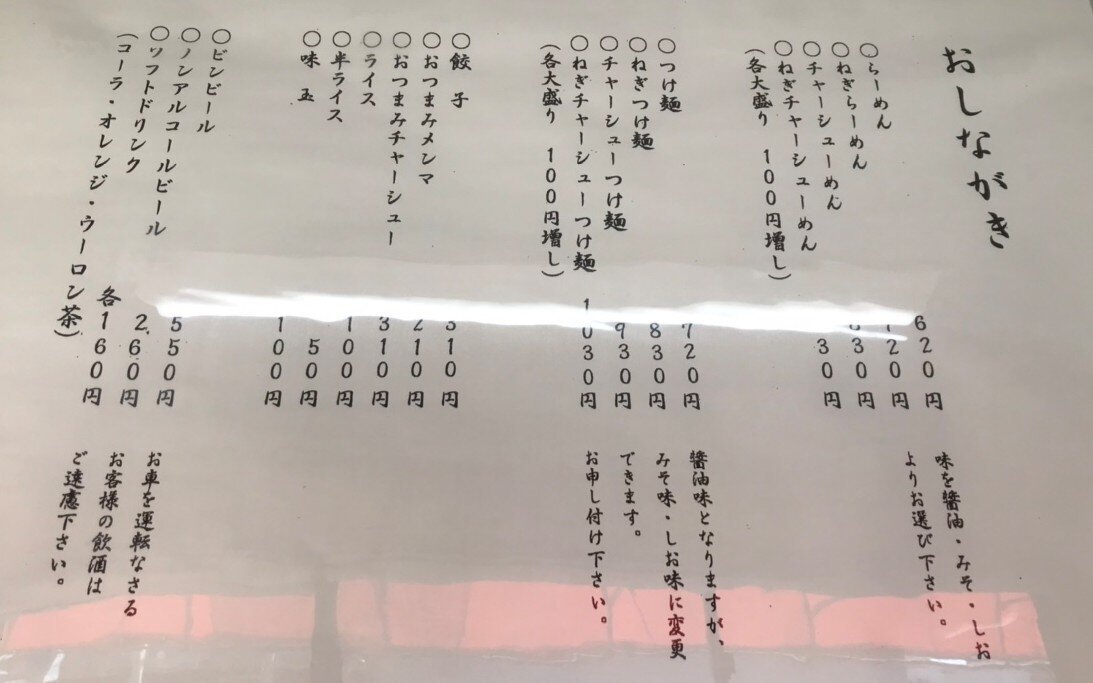 おしながき
○らーめん 620円
○ねぎらーめん 720円
○チャーシューめん 830円
○ねぎチャーシューめん
(各大盛り 100円増し)
味を醤油・みそ・しお
よりお選び下さい。
○つけ麺 720円
○ねぎつけ麺 830円
○チャーシューつけ麺 930円
○ねぎチャーシューつけ麺 1030円
(各大盛り 100円増し)
醤油味となりますが、
みそ味・しお味に変更
できます。
お申し付け下さい。
○餃子 310円
○おつまみメンマ 210円
○おつまみチャーシュー 310円
○ライス 100円
○半ライス 50円
○味玉 100円
○ビンビール 550円
○ノンアルコールビール 260円
○ソフトドリンク 各160円
(コーラ・オレンジ・ウーロン茶)
お車を運転なさる
お客様の飲酒は
ご遠慮下さい。